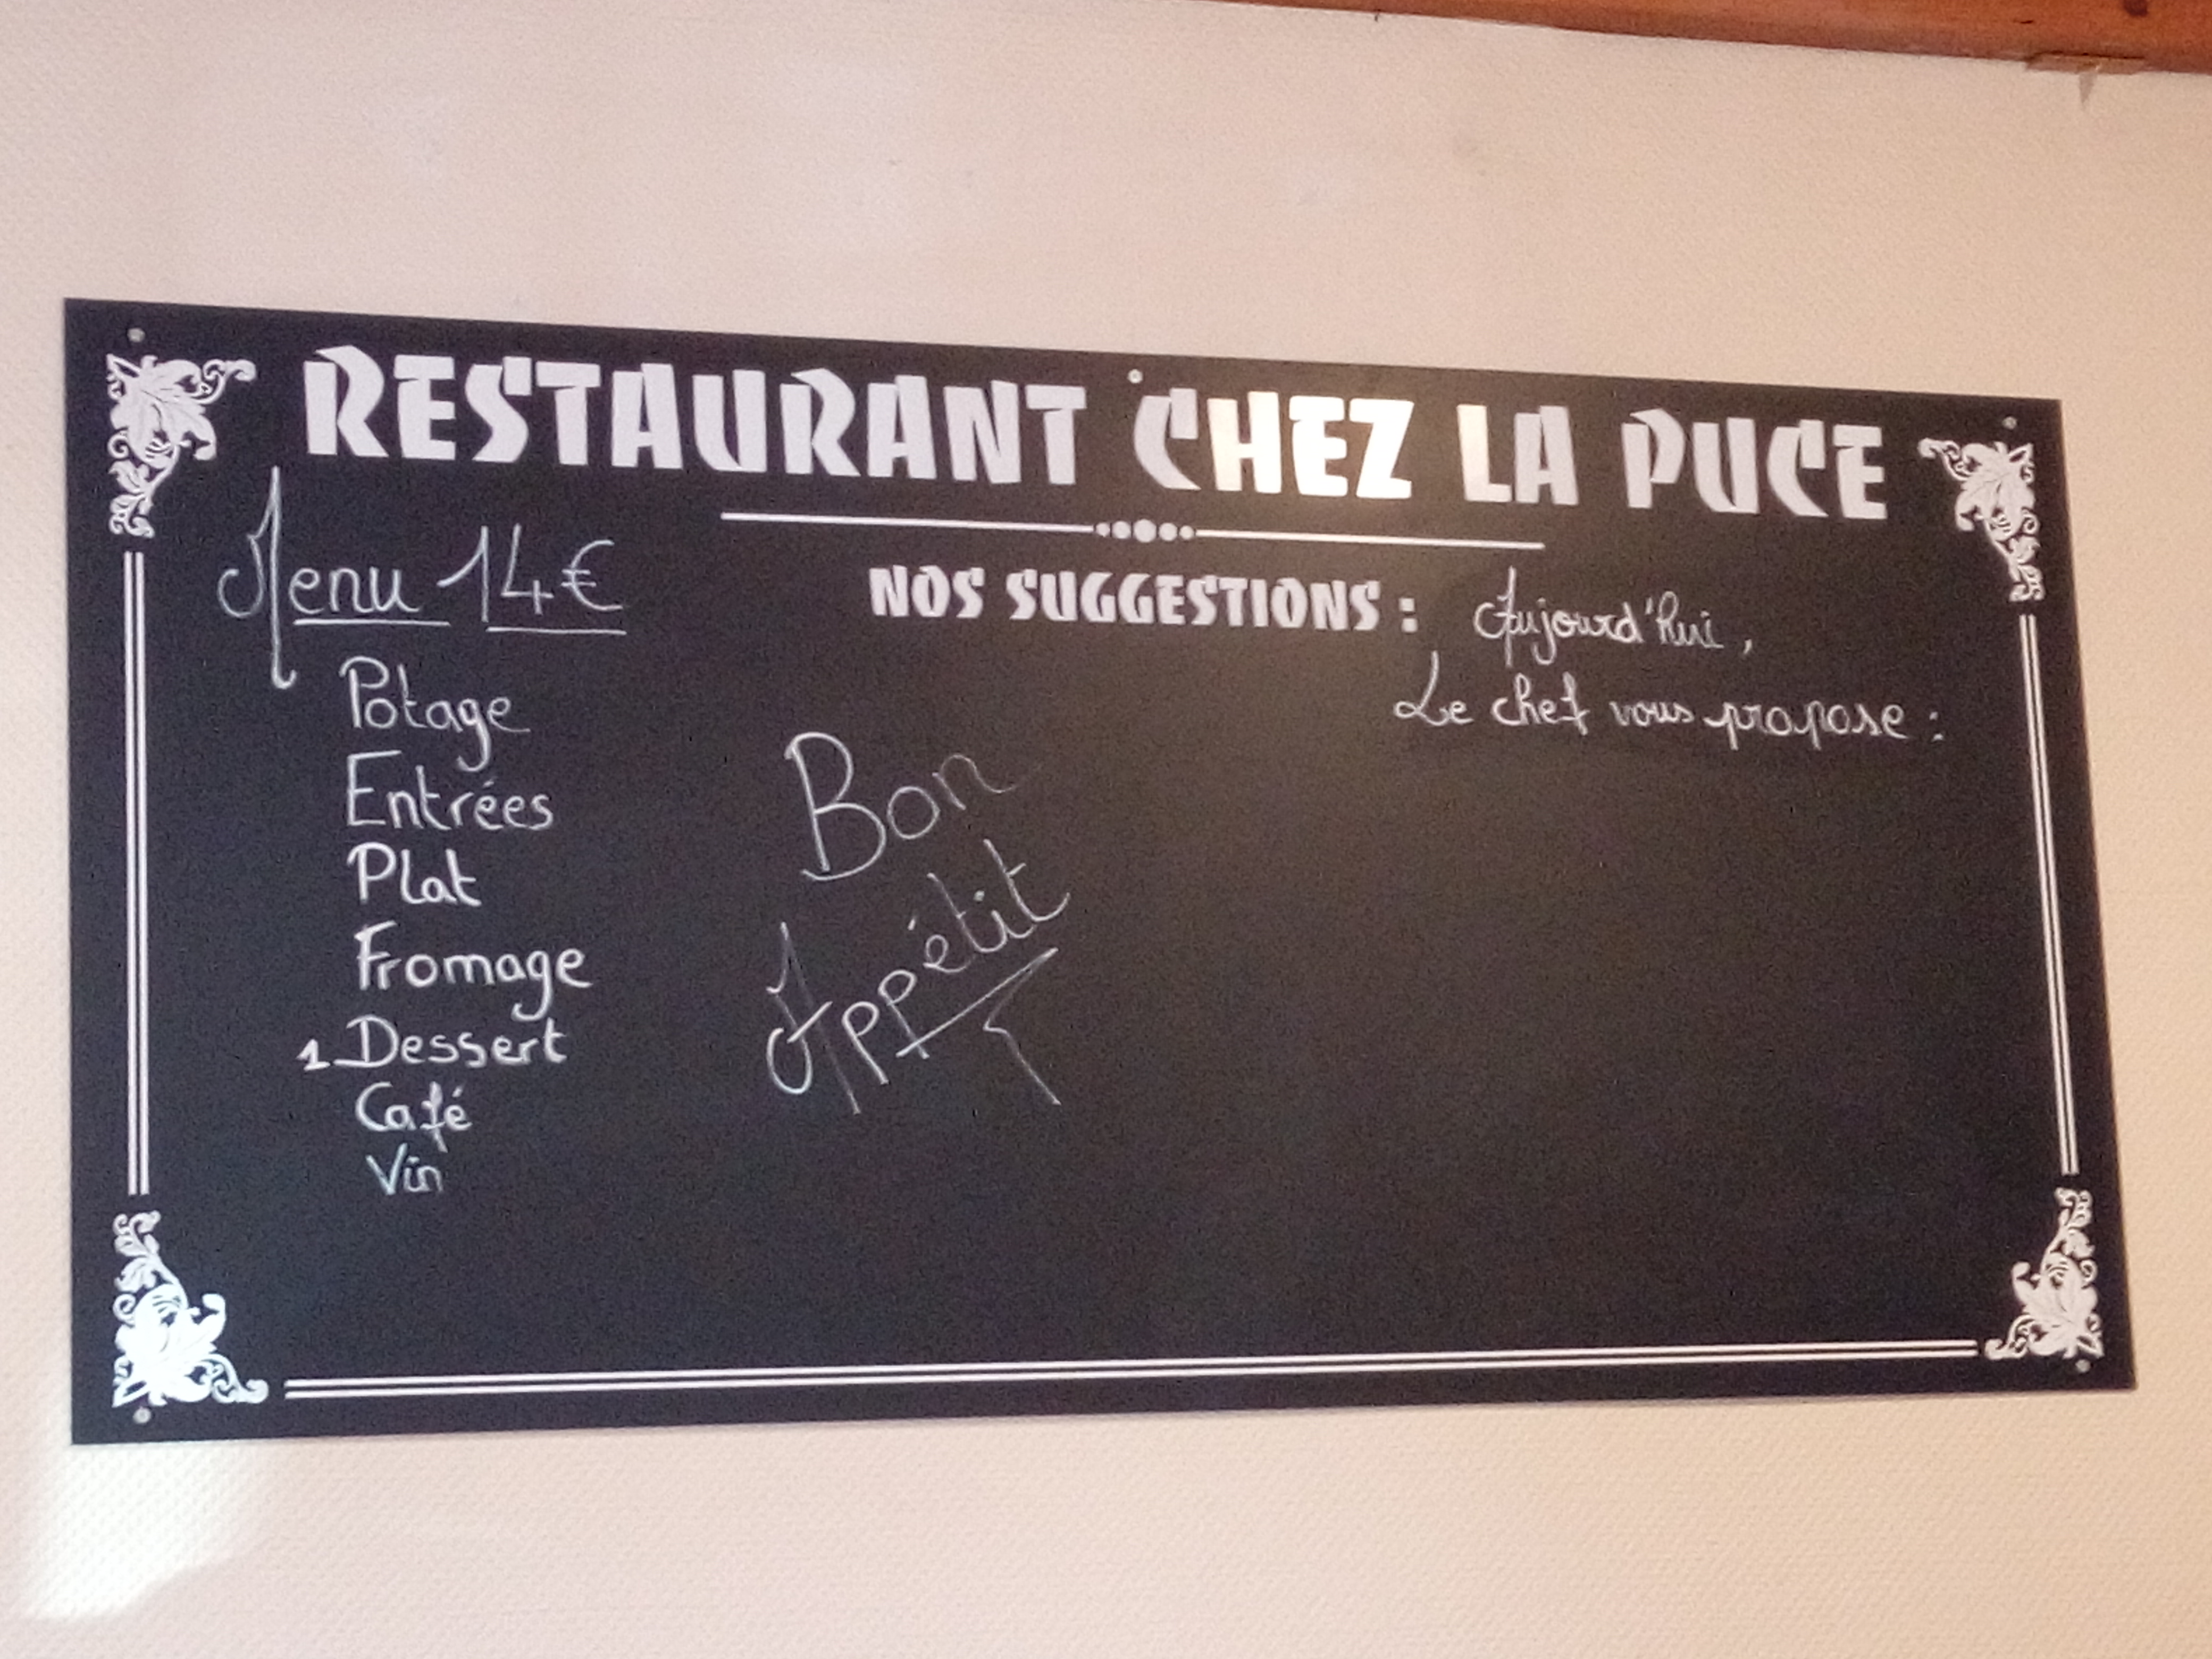 RESTAURANT CHEZ LA PUCE
Menu 14€
Potage
Entrées
Plat
Fromage
1 Dessert
Café
Vin
Bon
Appétit
NOS SUGGESTIONS : Aujourd'hui,
Le chef vous propose :